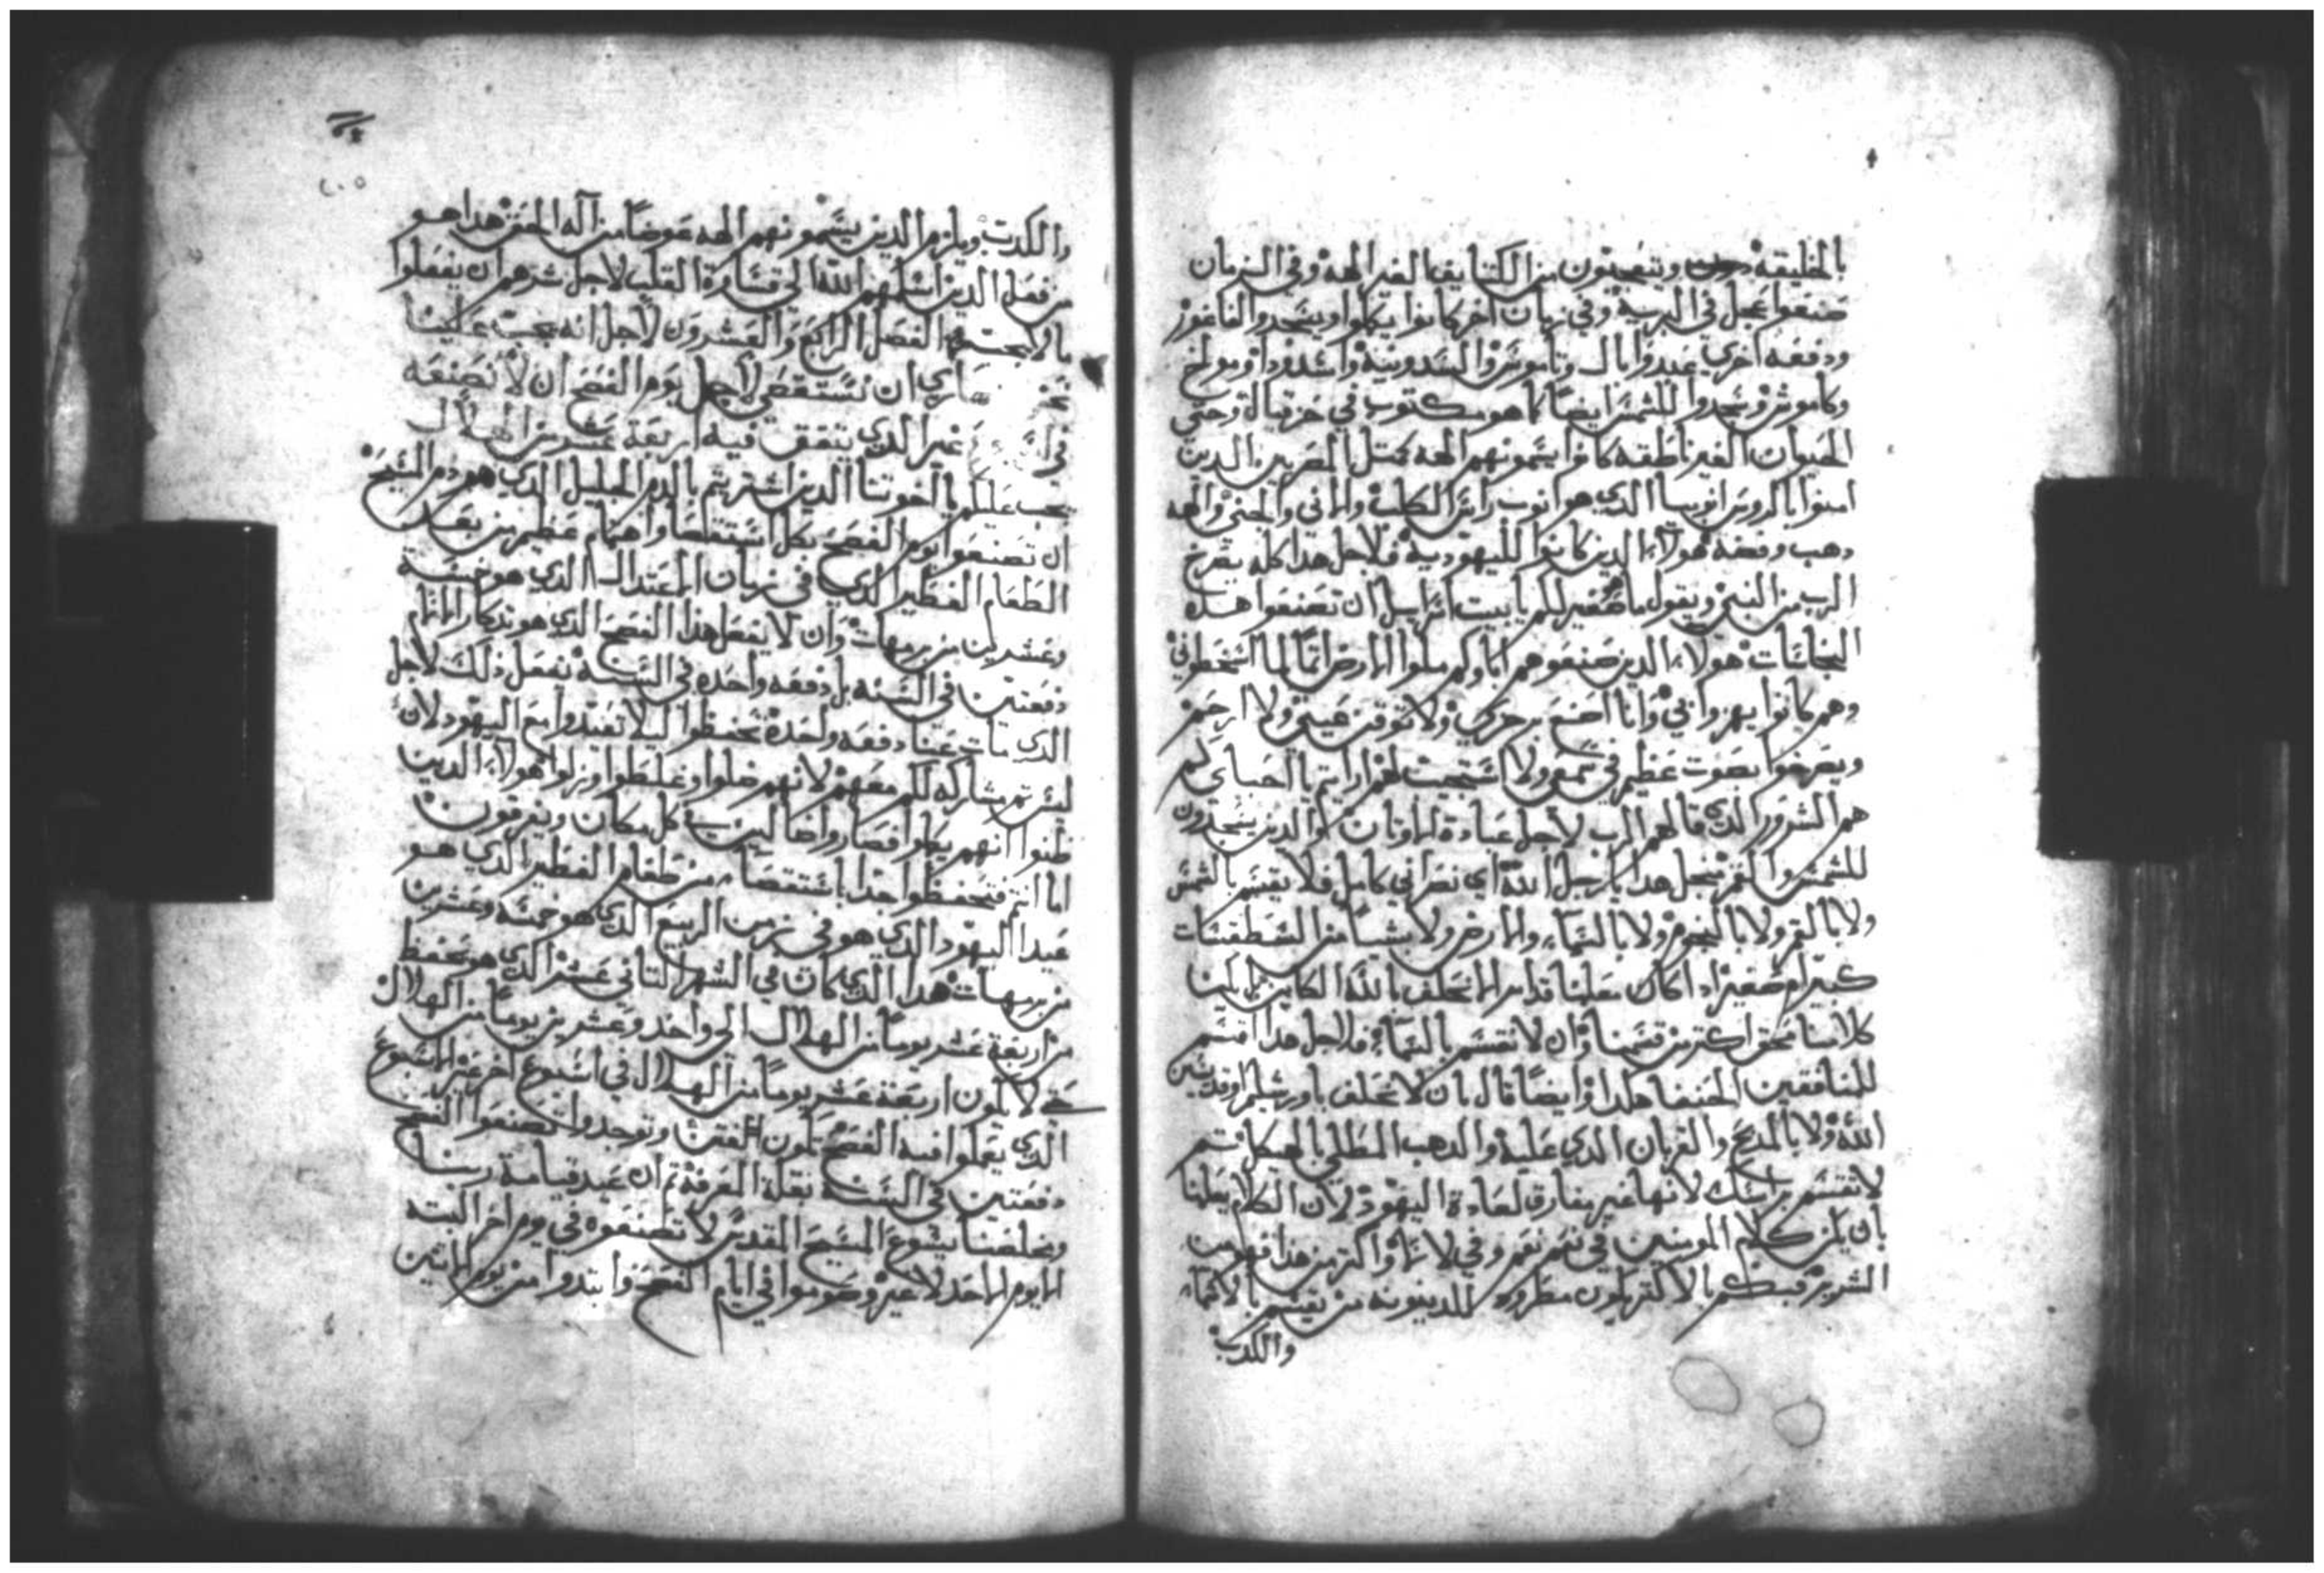 بالخليقة ويتعجبون من الكتايف الغير الهه وفي الزمان
صنعوا عجل في البرية وفي زمان اخر كانوا يكملوا ويسجدوا لفاغور
ودفعه اخري عبدوا بال وتاموس والسدونية واسدود او مولخ
وكاموش وسجدوا للشمس ايضًا كما هو مكتوب في حزقيال وحتي
الحيوان الغير ناطقه كانوا يسمونهم الهه كمثل المصريين الدين
امنوا بالروس الدي هو انوب راس الكلب والماني والجني والهه
دهب وفضه هولاء الدين كانوا لليهودية فلاجل هدا كله يصرخ
الرب من النبي ويقول ما صغير لكم يا بيت اسراييل ان تصنعوا هده
النجاسات هولاء الدين صنعوهم اباوكم ملوا الارض اثمًا لما اسخطوني
وهم كانوا يهزوا بي وانا اصنع برجزي ولا توقن عيني ولا ارحم
ويصرخوا بصوت عظيم في سمعي ولا استجيب لهم ارايتم يا احباي كم
هم الشرور الدي قالهم الرب لاجل عبادة الاوتان والدين يسجدون
للشمس والقمر فيجعل هدا يا رجل الله اي نصراني كامل فلا يقسم بالشمس
ولا بالقمر ولا بالنجوم ولا بالسماء والارض ولا بشيًا من السطقسات
كبير ام صغير اد اكان معلمنا قد امر الا نحلف بالله الكاين بل يكون
كلامنا محق اكتر من قسمنا وان لا نقسم بالسماء فلاجل هدا اقسم
للمنافقين الحنفا هكدا وايضًا قال بان لا تحلف باورشليم او قديسين
الله ولا بالمدبح والقربان الدي عليه والدهب المطلي بالهيكل تم
لا تقسم براسك لانها غير مفارق لعادة اليهود لان الكلام يعلمنا
بان يكن كلام المومنين في نعم نعم وفي لا لا واكتر من هدا فهو من
الشرير فبكم بالاكتر يكون مطروه للدينونه من يقسم بالاسماء
والكدب
والكدب ويلزم الدين يسمونهم الهه عوضًا من اله الحق هدا هو
من فعل الدين اسلمهم الله الي قساوة القلب لاجل شرهم ان يفعلوا
ما لا يجب الفصل الرابع والعشرون لاجل انه يجب علينا
نحن صاري ان نستقصي لاجل يوم الفصح ان لا نصنعه
غير الدي يتفق فيه اربعة عشر من الهلال
يجب عليكم يا اخوتنا الدين اشتريتم بالدم الجليل الدي هو دم المسيح
ان تصنعوا يوم الفصح بكل استقصا واهتمام عظيم من بعد
الطعام الفطير الدي في زمان الاعتدال الدي هو خمسة
وعشرين من برمهات وان لا يفعل هدا الفصح الدي هو تدكار الالام
دفعتين في السنه بل دفعه واحده في السنة نفعل دلك لاجل
الدي مات عنا دفعه واحدة تحفظوا ليلا تعيدوا مع اليهود لان
ليس تم مشاركه لكم معهم لانهم ضلوا وغلطوا وزلوا هولاء الدين
ظنوا انهم يكملوا فصاروا ضالين في كل مكان ويفرقون
اما انتم فتحفظوا جدًا باستقصاء من طعام الفطير الدي هو
عيد اليهود الدي هو في زمن الربيع الدي هو خمسه وعشرين
من برمهات هدا الدي كان في الشهر التاني عشر الدي هو تحفظ
من اربعة عشر يومًا من الهلال الي واحد وعشرين يومًا من الهلال
حتي لا يكون اربعة عشر يومًا من الهلال في اسبوع اخر غير الاسبوع
الدي يعملوا فيه الفصح وتوجدوا تصنعوا الفصح
دفعتين في السنة بقلة المعرفة تم ان عيد قيامة ربنا
ومخلصنا يسوع المسيح المقدس لا تصنعوه في يوم اخر البته
الا يوم الاحد لا غير وصوموا في ايام الفصح وابتدوا من يوم الاتنين